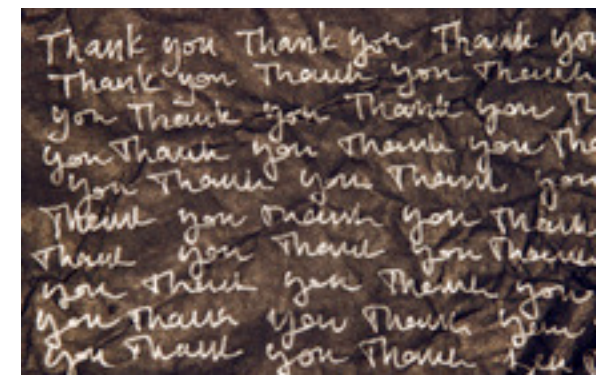 Thank you Thank you Thank you
Thank you Thank you Thank
you Thank you Thank you Th
you Thank you Thank you Tha
you Thank you Thank you
Thank you Thank you Thank
Thank you Thank you Thank
you Thank you Thank you
you Thank you Thank you
you Thank you Thank you